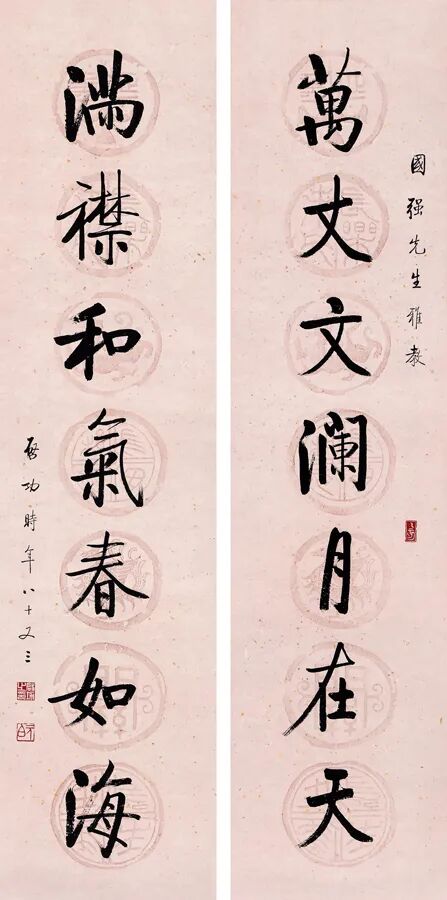 國强先生雅教
萬丈文瀾月在天
满襟和氣春如海
啓功時年八十又三